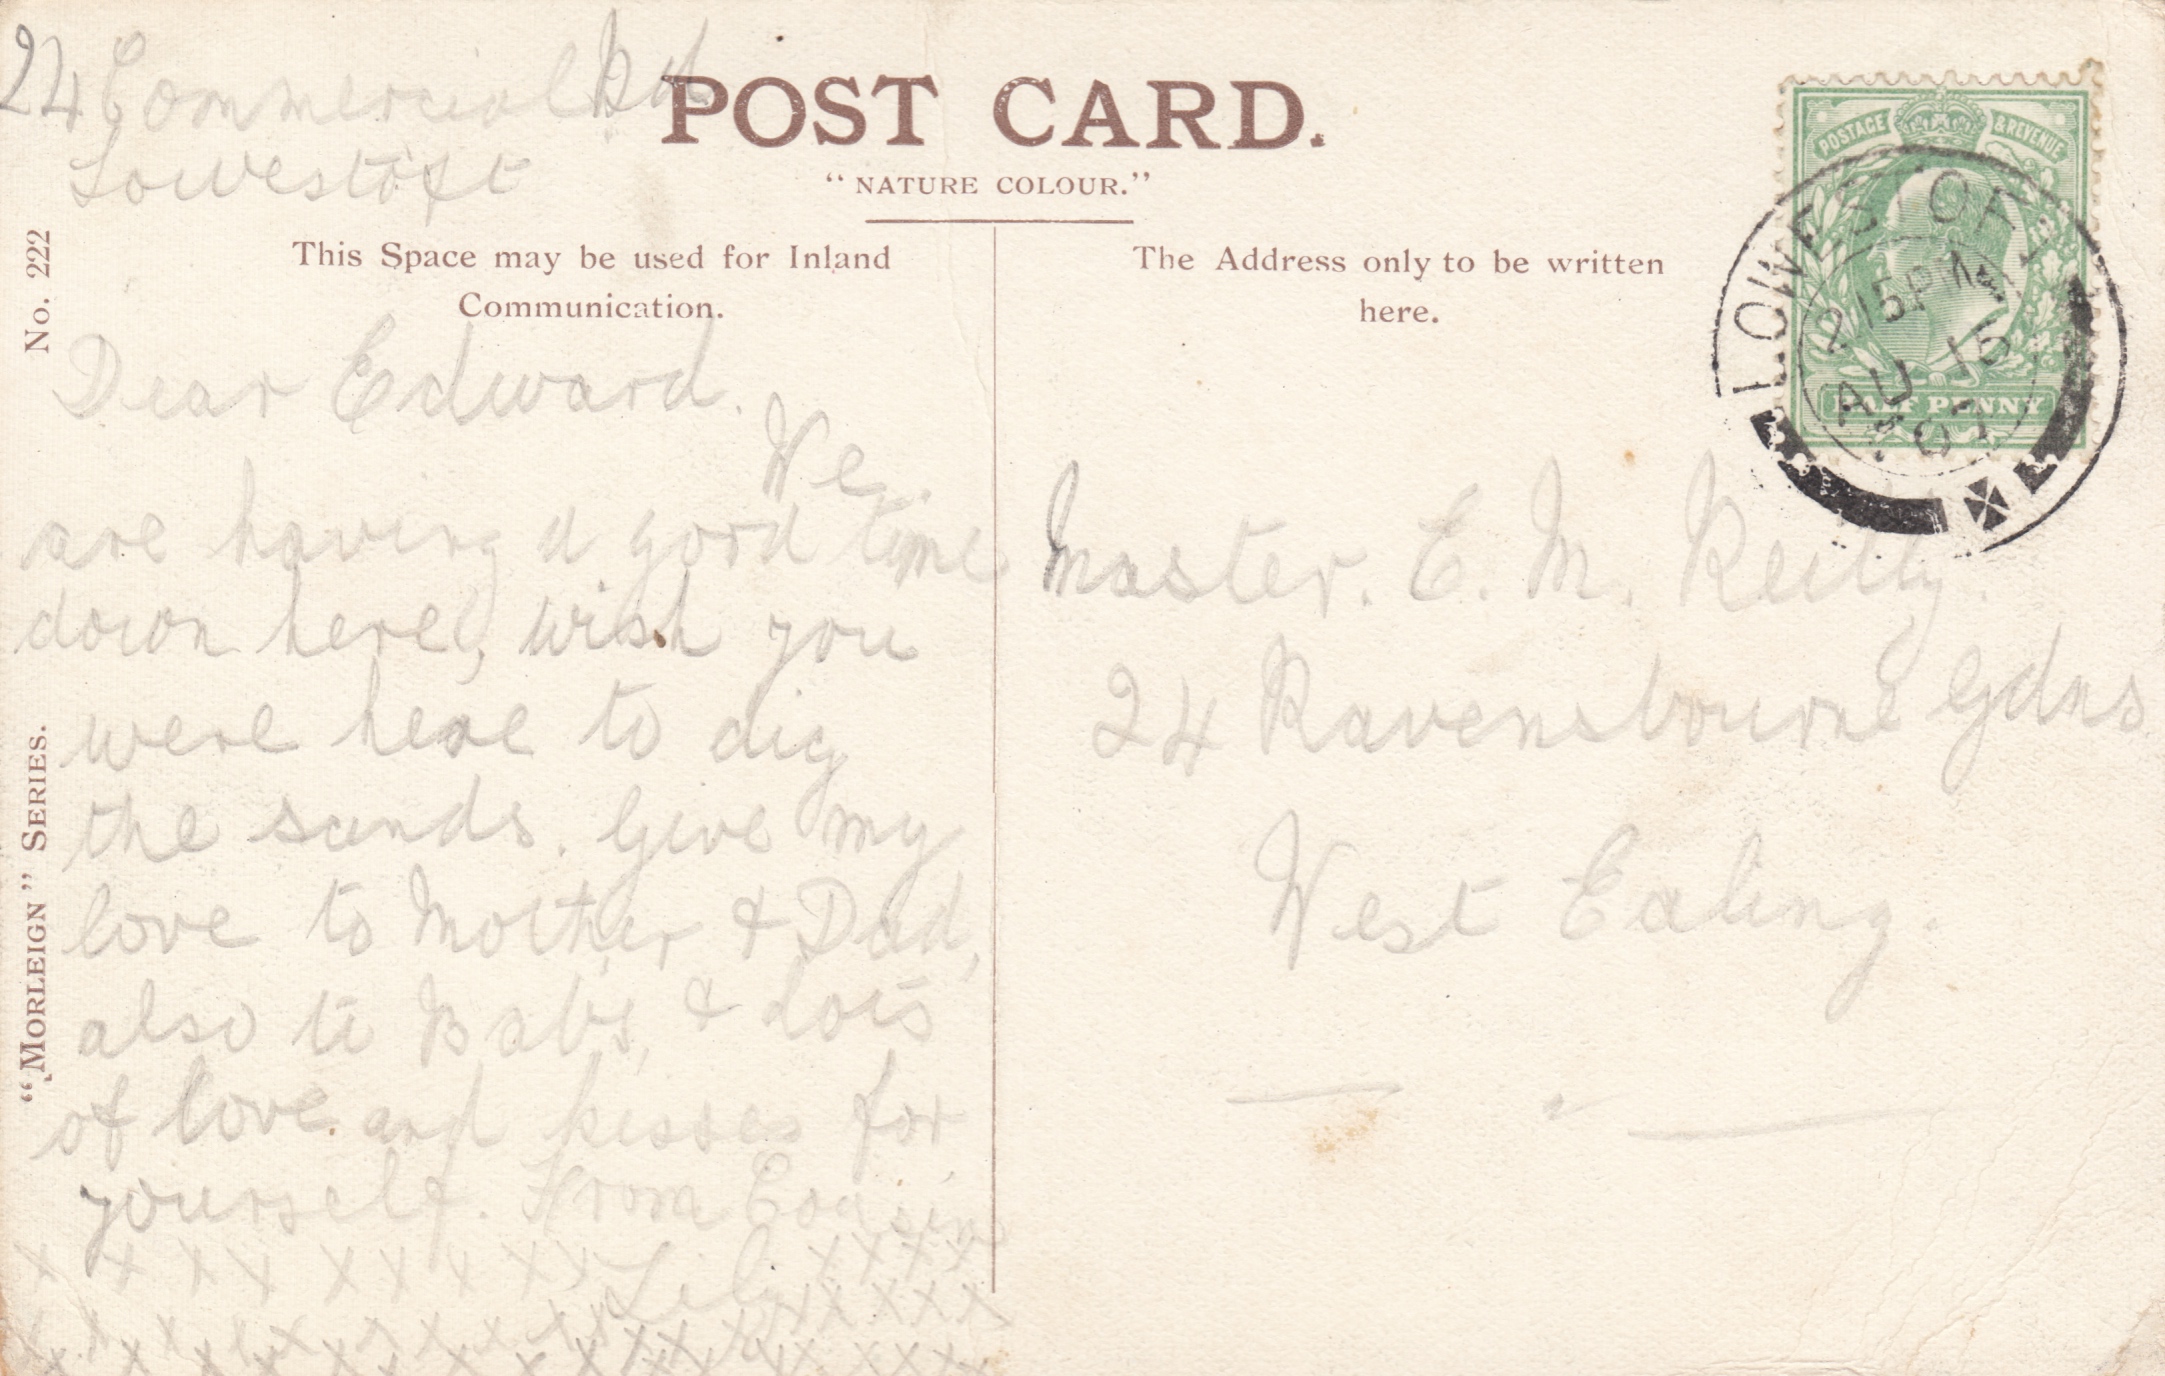 24 Commercial Rd
Lowestoft
POST CARD.
"NATURE COLOUR."
This Space may be used for Inland
Communication.
The Address only to be written
here.
No. 222
"MORLEIGN" SERIES.
Dear Edward.
We
are having a good time
down here, wish you
were here to dig
the sands. Give my
love to Mother & Dad,
also to Babs, & lots
of love and kisses for
yourself. From Cousin
Lily
x x x x x x x x x x x x x
Master. E. M. Reilly.
24 Ravensbourne Gdns
West Ealing.
POSTAGE & REVENUE
HALF PENNY
LOWESTOFT
2 15PM
AU 15
07